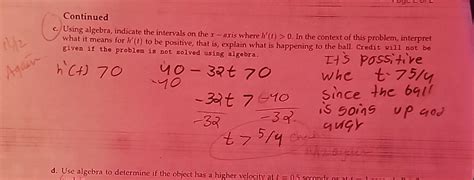 Continued
c. Using algebra, indicate the intervals on the x – axis where h'(t) > 0. In the context of this problem, interpret
what it means for h'(t) to be positive, that is, explain what is happening to the ball. Credit will not be
given if the problem is not solved using algebra.
Again
h'(t) > 0
40 - 32t > 0
-40
-32t > -40
-32 -32
t > 5/4
It's possitive
whe t > 5/4
Since the ball
is going up and
d. Use algebra to determine if the object has a higher velocity at t = 0.5 seconds or at